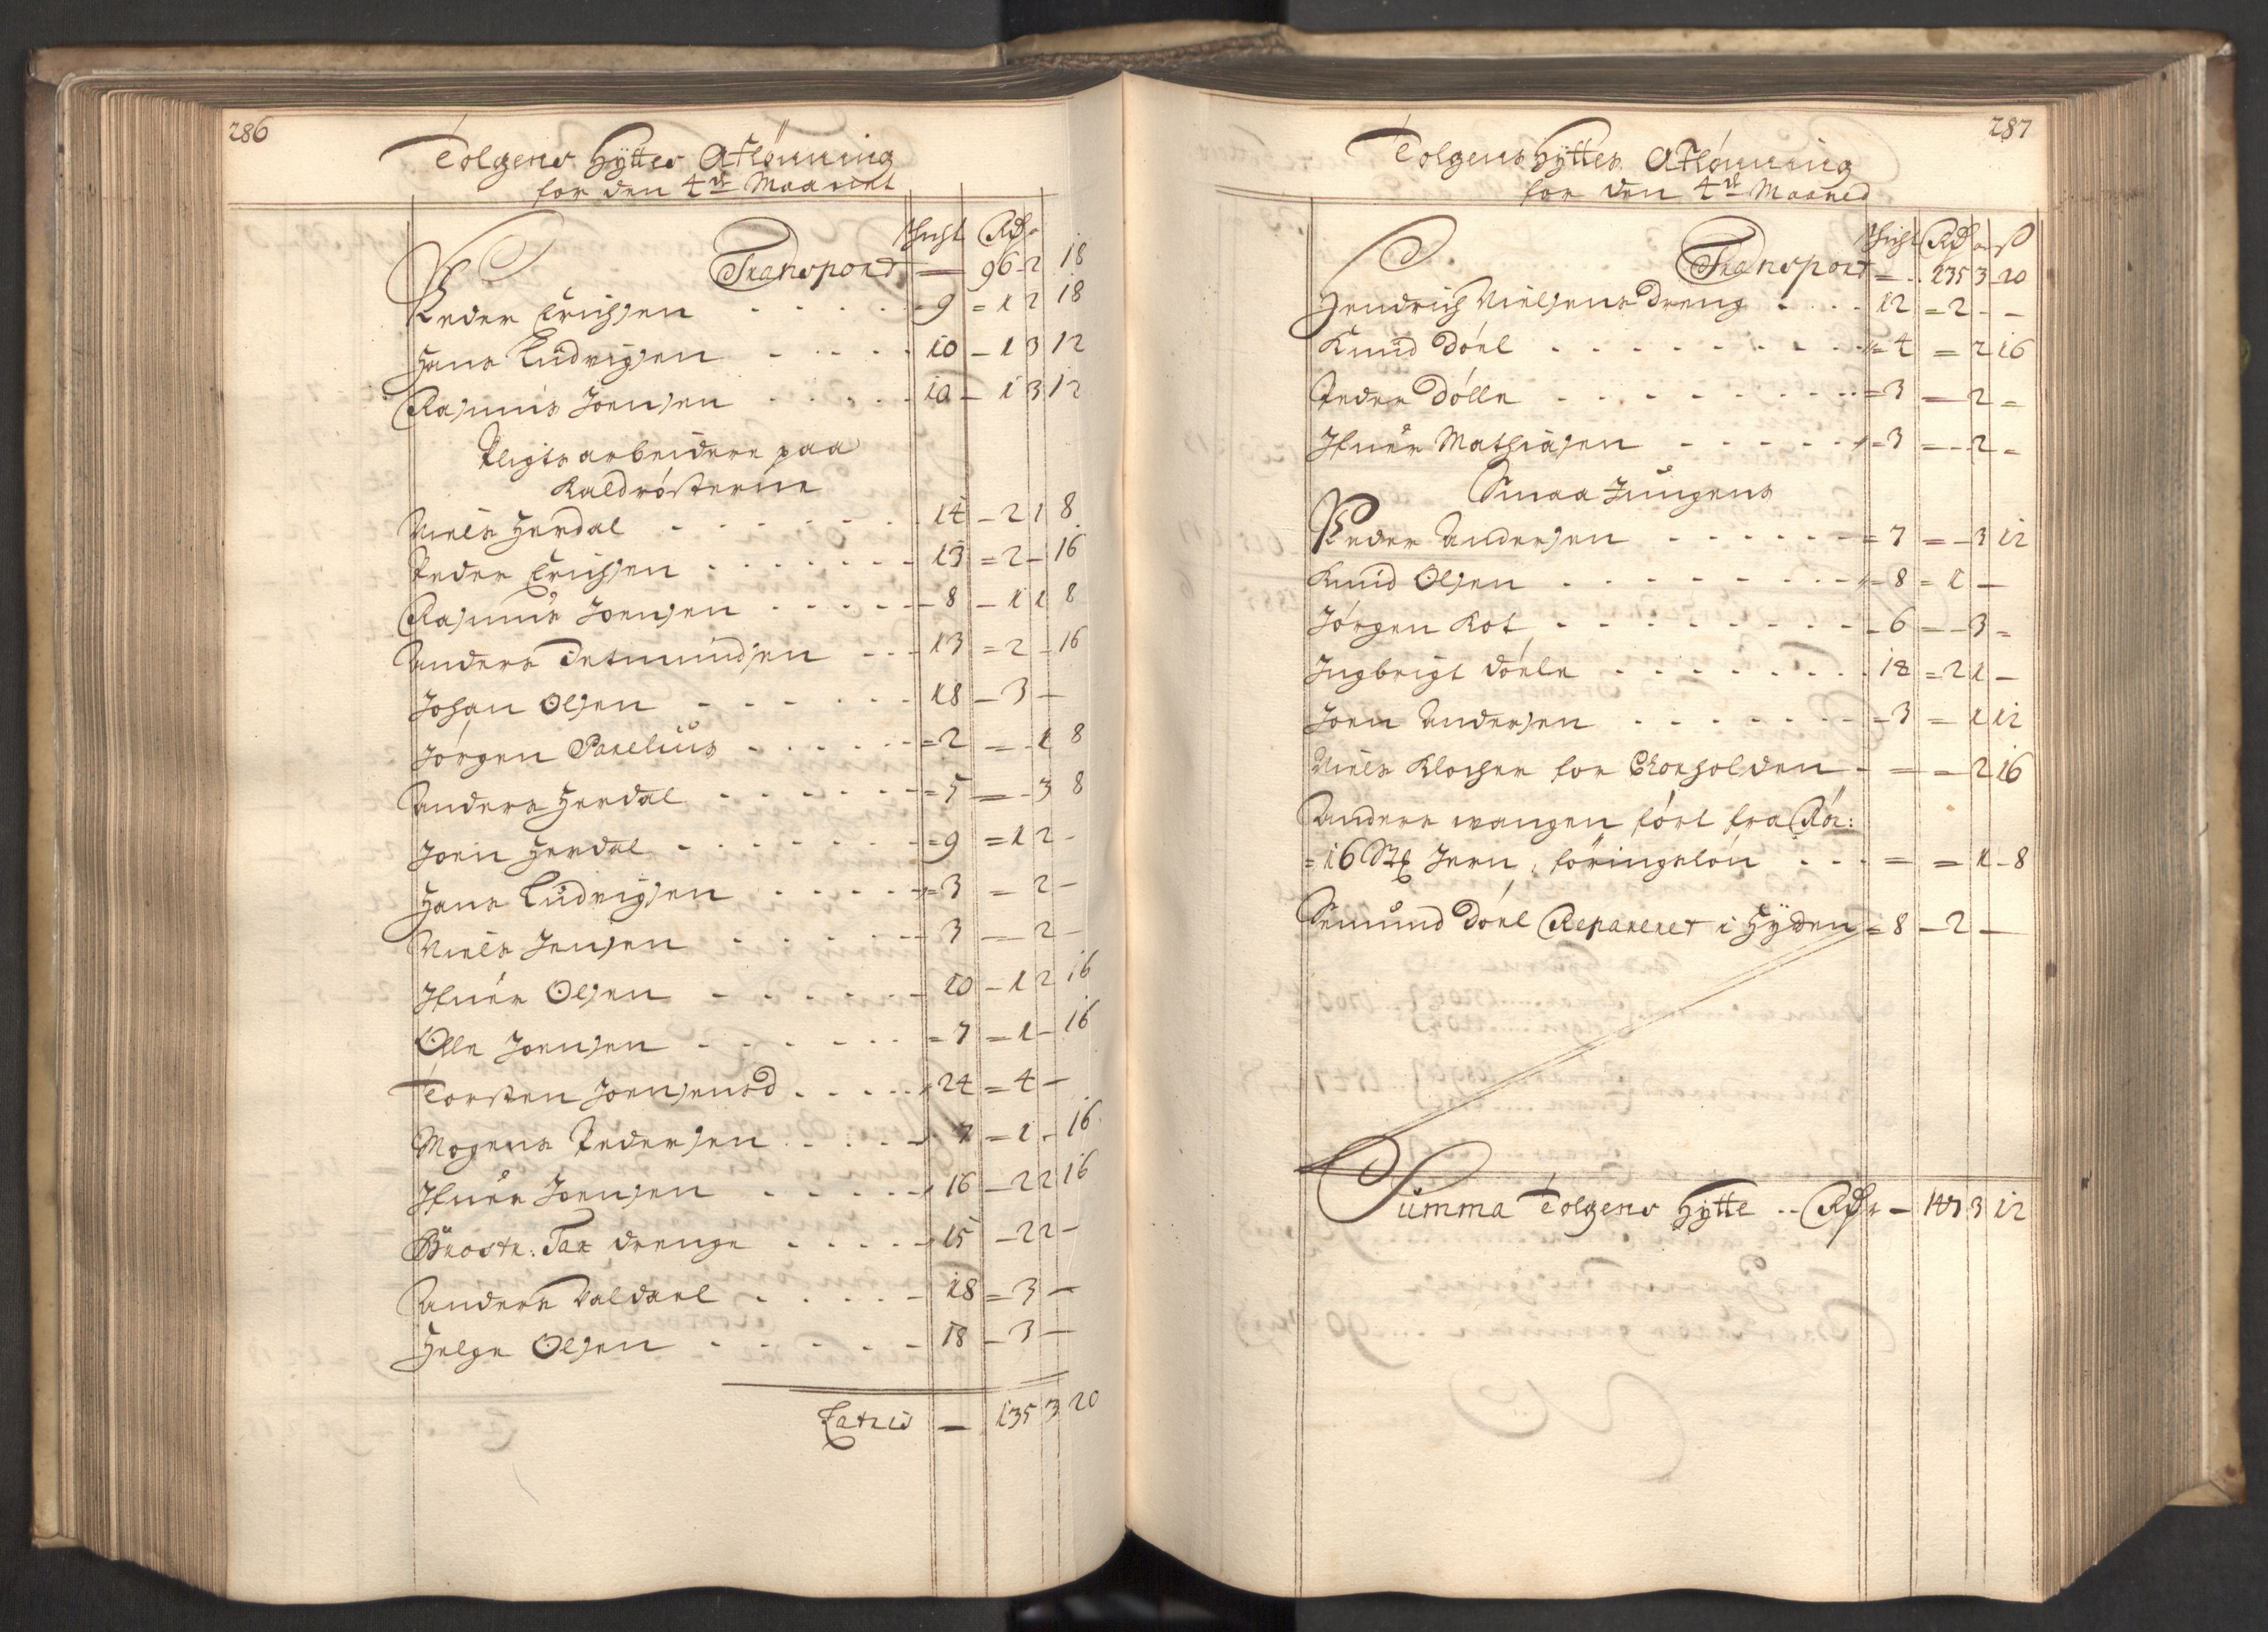 286
Tolgens Hÿttes Aflønning
for den 4de Maanet
Schicht Rdr
Transport — 96 - 2 18
Peder Erichsen - - - - - 9 = 1 2 18
Hans Ludvigsen - - - - 10 - 1 3 12
Rasmus Joensen - - - - - 10 - 1 3 12
Pligts arbeidere paa
Kaldrösterne
Niels Herdal - - - - - - - 14 - 2 1 8
Peder Erichsen - - - - - - - 13 = 2 - 16
Rasmus Joensen - - - - - 8 - 1 1 8
Anders Setmundsen - - - 13 = 2 - 16
Johan Olsen - - - - - - 18 - 3 -
Jörgen Parelius - - - - - = 2 = - 1 8
Anders Herdal - - - - - - = 5 = - 3 8
Joen Herdal - - - - - - - = 9 = 1 2 -
Hans Ludvigsen - - - - - = 3 = 2 -
Niels Jensen - - - - - - 3 — 2 -
Ifuer Olsen - - - - - - 10 - 1 2 16
Olle Joensen - - - - - - = 7 = 1 - 16
Torsten Joensens d - - - - 24 = 4 -
Mogens Pedersen - - - - 7 = 1 - 16
Ifuer Joensen - - - - - 16 - 2 2 16
Brostr: Tax drenge - - - - - 15 - 2 2 -
Anders Valdael - - - - - 18 = 3 -
Helge Olsen - - - - - - 18 - 3 -
Latris — 135 3 20
287
Tolgens Hÿttes Aflønning
for den 4de Maaned
Schicht Rdr ß
Transport = - 135 3 20
Hendrich Nielsens dreng - - - 12 = 2 - -
Knud döel - - - - - - - - - = 4 = 2 16
Peder dölle - - - - - - - - - = 3 — 2 =
Ifuer Mathiasen - - - - - - = 3 = - 2 =
Smaa Jungens
Peder Andersen - - - - - - = 7 = - 3 12
Knud Olsen - - - - - - - - = 8 = 1 -
Jörgen Kot - - - - - - - - - 6 = - 3 =
Ingbrigt döele - - - - - - - 18 = 2 1 -
Joen Andersen - - - - - - - = 3 = 1 12
Niels Klocher for Chorholden - — = 2 16
Anders wangen fört fra Rör:
= 16 St℔ Jern, föringslön - - - = = 1 - 8
Semund döel Reparert i Hÿtten = 8 - 2 —
Summa Tolgens Hÿtte - - Rdr - 147 3 12